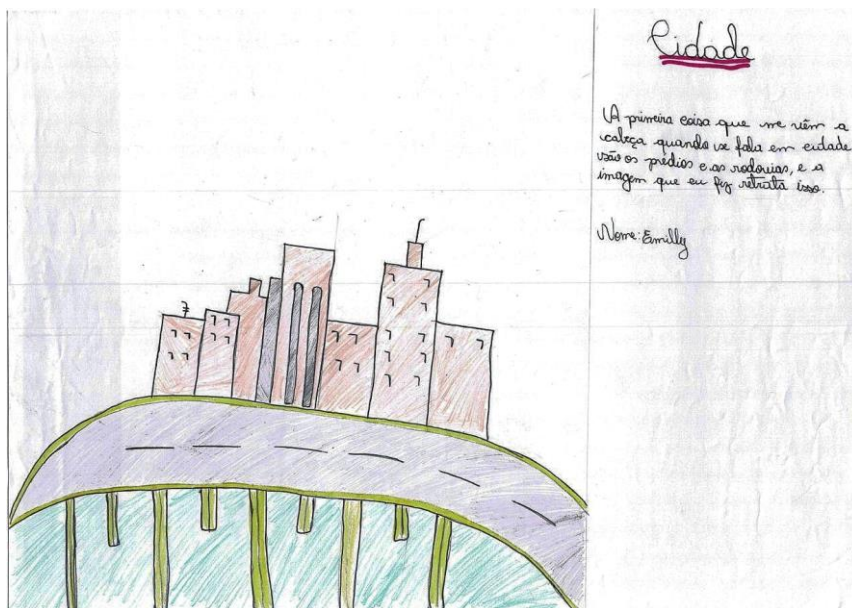 Cidade
A primeira coisa que me vêm a
cabeça quando se fala em cidade
são os prédios e as rodovias, e a
imagem que eu fiz retrata isso.
Nome: Emilly